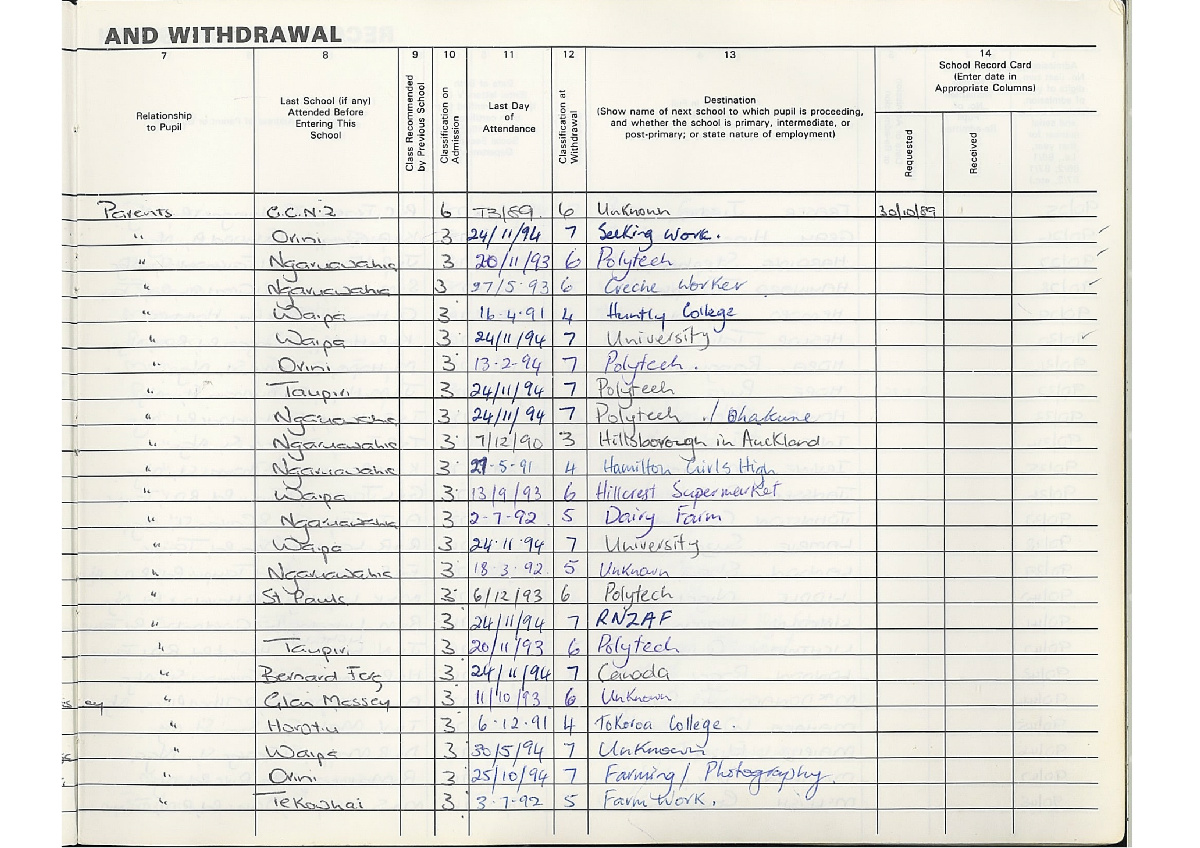 AND WITHDRAWAL
7 8 9 10 11 12 13 14
Relationship to Pupil
Last School (if any) Attended Before Entering This School
Class Recommended by Previous School
Classification on Admission
Last Day of Attendance
Classification at Withdrawal
Destination (Show name of next school to which pupil is proceeding, and whether the school is primary, intermediate, or post-primary; or state nature of employment)
School Record Card (Enter date in Appropriate Columns)
Requested
Received
Parents G.C.N.2 6 T3/89. 6 Unknown 30/10/89
" Orini 3 24/11/94 7 Seeking Work.
" Ngaruawahia 3 20/11/93 6 Polytech
" Ngaruawahia 3 27/5.93 6 Creche Worker
" Waipa 3 16.4.91 4 Huntly College
" Waipa 3 24/11/94 7 University
" Orini 3 13-2-94 7 Polytech.
" Taupiri 3 24/11/94 7 Polytech
" Ngaruawahia 3 24/11/94 7 Polytech / Ohakune
" Ngaruawahia 3 7/12/90 3 Hillsborough in Auckland
" Ngaruawahia 3 -5-91 4 Hamilton Girls High
" Waipa 3 13/9/93 6 Hillcrest Supermarket
" Ngaruawahia 3 2-7-92 5 Dairy Farm
" Waipa 3 24.11.94 7 University
" Ngaruawahia 3 18.3.92. 5 Unknown
" St Pauls 3 6/12/93 6 Polytech
" 3 24/11/94 7 RNZAF
" Taupiri 3 20/11/93 6 Polytech
" Bernard Ferg 3 24/11/94 7 Canada
ey " Glen Massey 3 11/10/93 6 Unknown
" Horotiu 3 6.12.91 4 Tokoroa College.
" Waipa 3 30/5/94 7 Unknown
" Orini 3 25/10/94 7 Farming / Photography
" Te Kowhai 3 3.7.92 5 Farm Work.